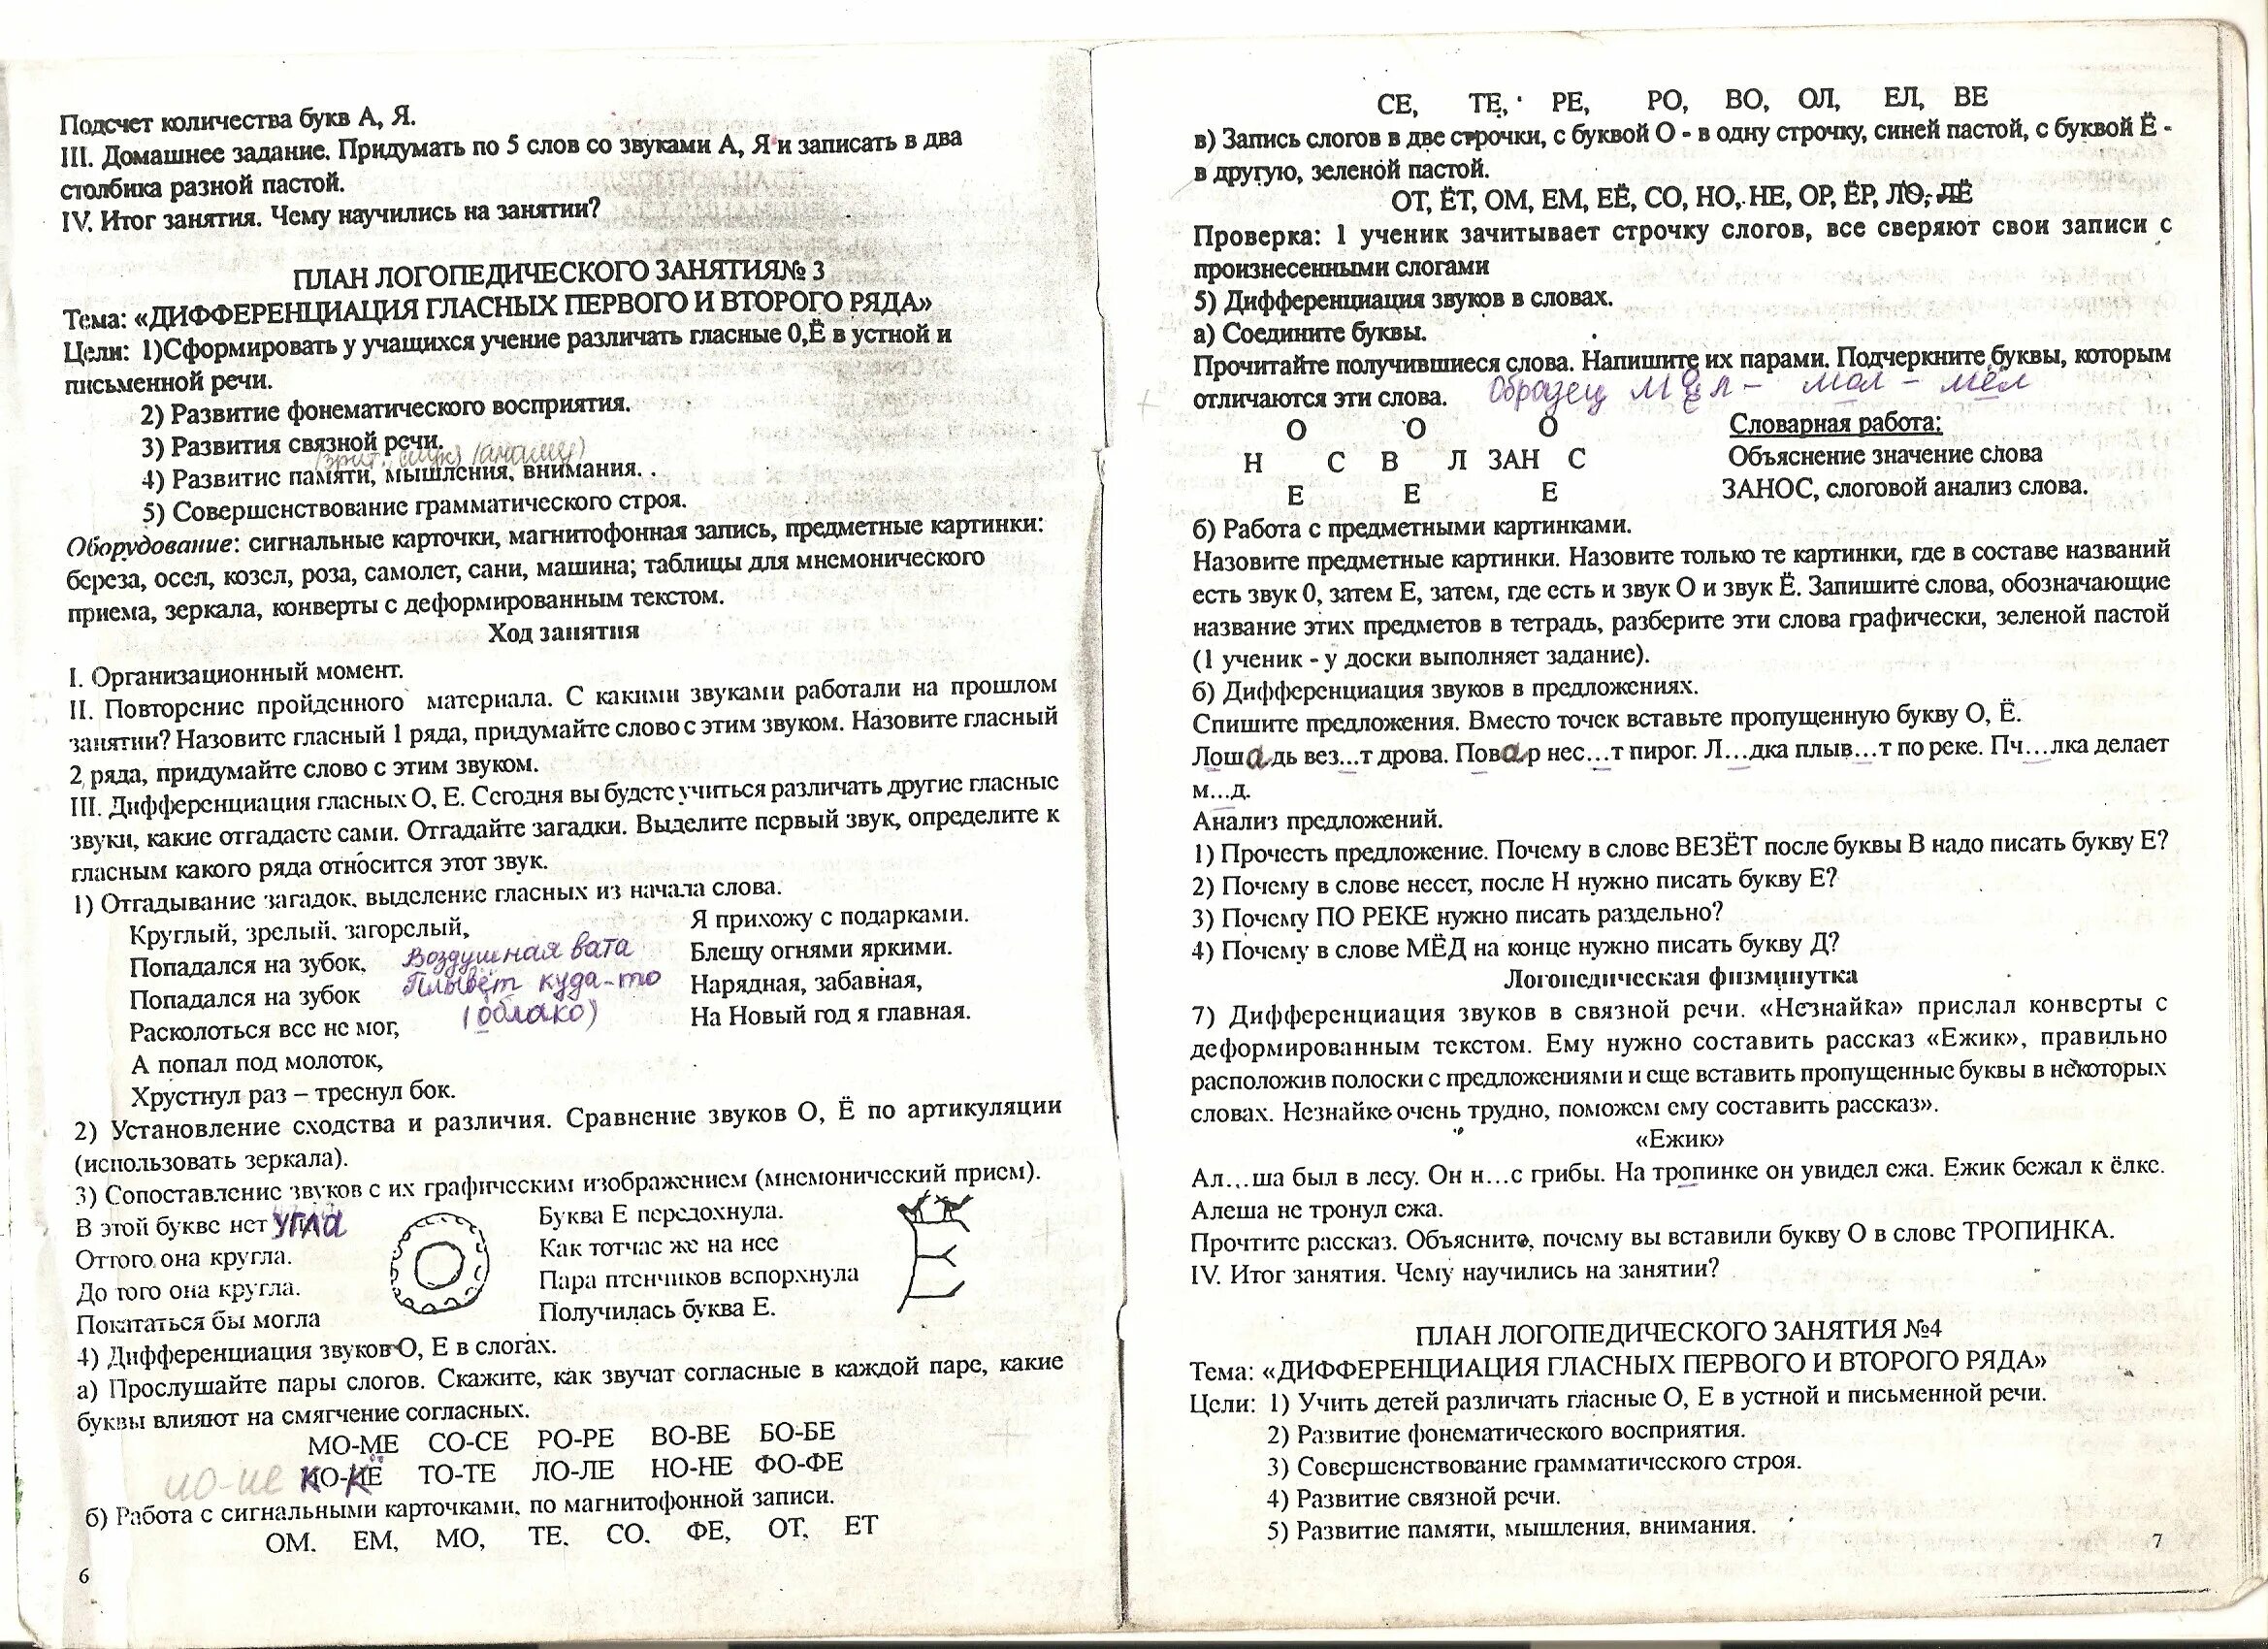 Подсчет количества букв А, Я.
III. Домашнее задание. Придумать по 5 слов со звуками А, Я и записать в два
столбика разной пастой.
IV. Итог занятия. Чему научились на занятии?
ПЛАН ЛОГОПЕДИЧЕСКОГО ЗАНЯТИЯ№ 3
Тема: «ДИФФЕРЕНЦИАЦИЯ ГЛАСНЫХ ПЕРВОГО И ВТОРОГО РЯДА»
Цели: 1)Сформировать у учащихся учение различать гласные 0,Ё в устной и
письменной речи.
2) Развитие фонематического восприятия.
3) Развития связной речи.
(зрит., слух) (анализу)
4) Развитие памяти, мышления, внимания. .
5) Совершенствование грамматического строя.
Оборудование: сигнальные карточки, магнитофонная запись, предметные картинки:
береза, осел, козел, роза, самолет, сани, машина; таблицы для мнемонического
приема, зеркала, конверты с деформированным текстом.
Ход занятия
I. Организационный момент.
II. Повторение пройденного материала. С какими звуками работали на прошлом
занятии? Назовите гласный 1 ряда, придумайте слово с этим звуком. Назовите гласный
2 ряда, придумайте слово с этим звуком.
III. Дифференциация гласных О, Е. Сегодня вы будете учиться различать другие гласные
звуки, какие отгадаете сами. Отгадайте загадки. Выделите первый звук, определите к
гласным какого ряда относится этот звук.
1) Отгадывание загадок, выделение гласных из начала слова.
Круглый, зрелый, загорелый,
Попадался на зубок,
Попадался на зубок
Расколоться все не мог,
А попал под молоток,
Хрустнул раз – треснул бок.
Воздушная вата
Плывёт куда-то
(облако)
Я прихожу с подарками.
Блещу огнями яркими.
Нарядная, забавная,
На Новый год я главная.
2) Установление сходства и различия. Сравнение звуков О, Ё по артикуляции
(использовать зеркала).
3) Сопоставление звуков с их графическим изображением (мнемонический прием).
В этой букве нет угла
Оттого она кругла.
До того она кругла.
Покататься бы могла
Буква Е передохнула.
Как тотчас же на нее
Пара птенчиков вспорхнула
Получилась буква Е.
4) Дифференциация звуков О, Е в слогах.
а) Прослушайте пары слогов. Скажите, как звучат согласные в каждой паре, какие
буквы влияют на смягчение согласных.
МО-МЕ СО-СЕ РО-РЕ ВО-ВЕ БО-БЕ
КО-КЁ ТО-ТЕ ЛО-ЛЕ НО-НЕ ФО-ФЕ
б) Работа с сигнальными карточками, по магнитофонной записи.
ОМ. ЕМ, МО, ТЕ. СО. ФЕ, ОТ, ЕТ
6
СЕ, ТЕ, РЕ, РО, ВО, ОЛ, ЕЛ, ВЕ
в) Запись слогов в две строчки, с буквой О - в одну строчку, синей пастой, с буквой Ё -
в другую, зеленой пастой.
ОТ, ЁТ, ОМ, ЕМ, ЕЁ, СО, НО, НЕ, ОР, ЁР, ЛО, ЛЁ
Проверка: 1 ученик зачитывает строчку слогов, все сверяют свои записи с
произнесенными слогами
5) Дифференциация звуков в словах.
а) Соедините буквы.
Прочитайте получившиеся слова. Напишите их парами. Подчеркните буквы, которым
отличаются эти слова. Образец м о ё л – мол – мёл
О О О
Н С В Л ЗАН С
Е Е Е
Словарная работа:
Объяснение значение слова
ЗАНОС, слоговой анализ слова.
б) Работа с предметными картинками.
Назовите предметные картинки. Назовите только те картинки, где в составе названий
есть звук 0, затем Е, затем, где есть и звук О и звук Ё. Запишите слова, обозначающие
название этих предметов в тетрадь, разберите эти слова графически, зеленой пастой
(1 ученик - у доски выполняет задание).
б) Дифференциация звуков в предложениях.
Спишите предложения. Вместо точек вставьте пропущенную букву О, Ё.
Лошадь вез...т дрова. Повар нес...т пирог. Л...дка плыв...т по реке. Пч...лка делает
м...д.
Анализ предложений.
1) Прочесть предложение. Почему в слове ВЕЗЁТ после буквы В надо писать букву Е?
2) Почему в слове несет, после Н нужно писать букву Е?
3) Почему ПО РЕКЕ нужно писать раздельно?
4) Почему в слове МЁД на конце нужно писать букву Д?
Логопедическая физминутка
7) Дифференциация звуков в связной речи. «Незнайка» прислал конверты с
деформированным текстом. Ему нужно составить рассказ «Ежик», правильно
расположив полоски с предложениями и еще вставить пропущенные буквы в некоторых
словах. Незнайке очень трудно, поможем ему составить рассказ».
«Ежик»
Ал...ша был в лесу. Он н...с грибы. На тропинке он увидел ежа. Ежик бежал к ёлке.
Алеша не тронул ежа.
Прочтите рассказ. Объясните, почему вы вставили букву О в слове ТРОПИНКА.
IV. Итог занятия. Чему научились на занятии?
ПЛАН ЛОГОПЕДИЧЕСКОГО ЗАНЯТИЯ №4
Тема: «ДИФФЕРЕНЦИАЦИЯ ГЛАСНЫХ ПЕРВОГО И ВТОРОГО РЯДА»
Цели: 1) Учить детей различать гласные О, Е в устной и письменной речи.
2) Развитие фонематического восприятия.
3) Совершенствование грамматического строя.
4) Развитие связной речи.
5) Развитие памяти, мышления, внимания.
7